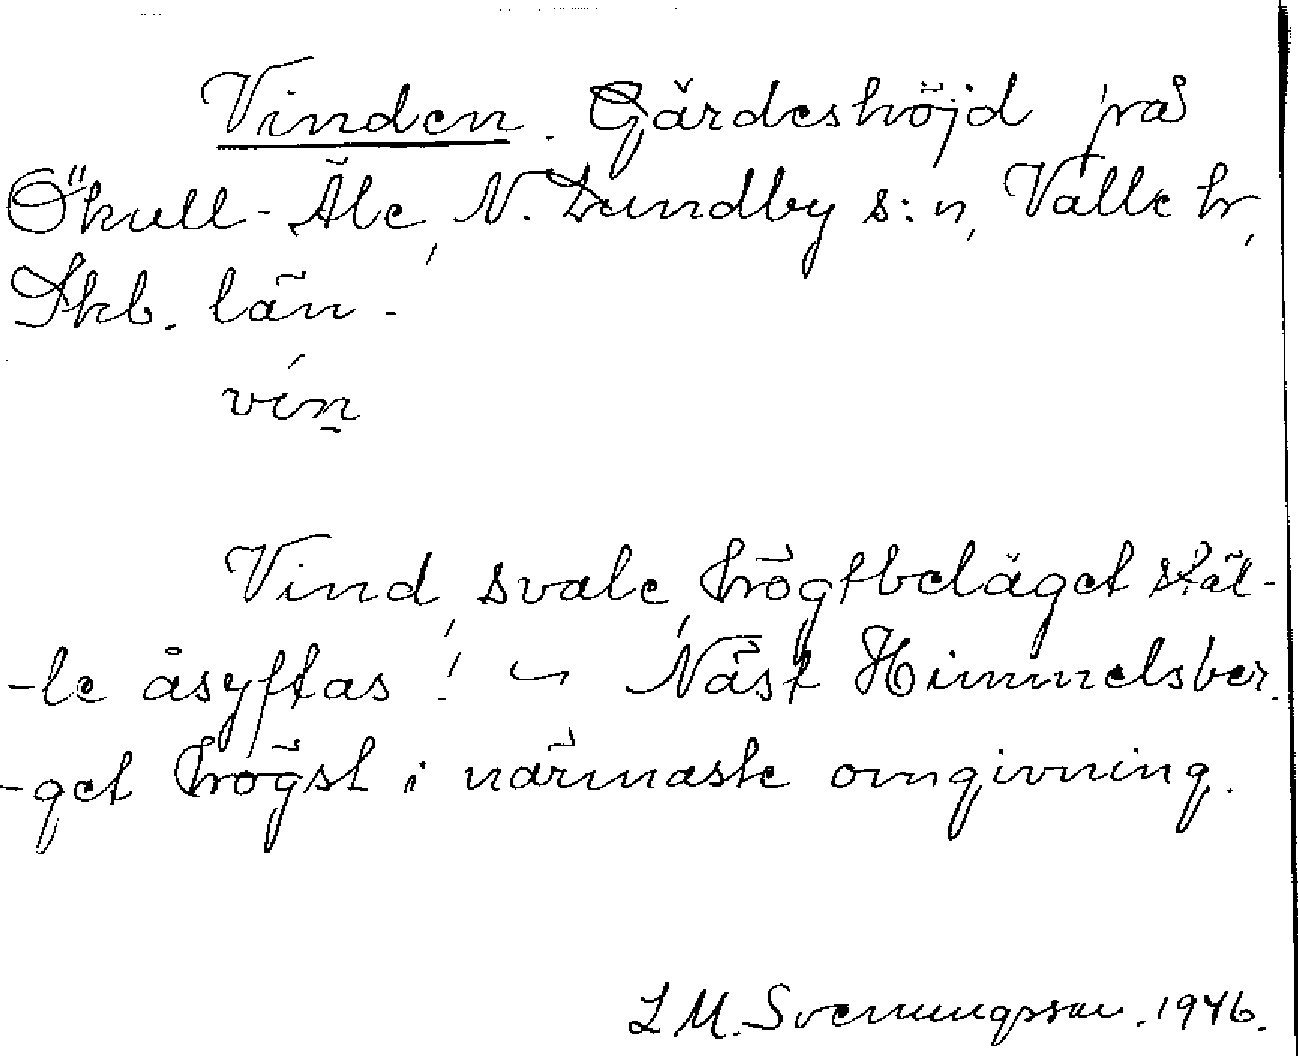 Vinden. Gärdeshöjd på
Ökull-Åle, N. Lundby s:n, Valle hr,
Skb. län.
vín̰
Vind, svale, högtbeläget stäl-
-le åsyftas! – Näst Himmelsber-
-get högst i närmaste omgivning.
L M. Svenungsson. 1946.